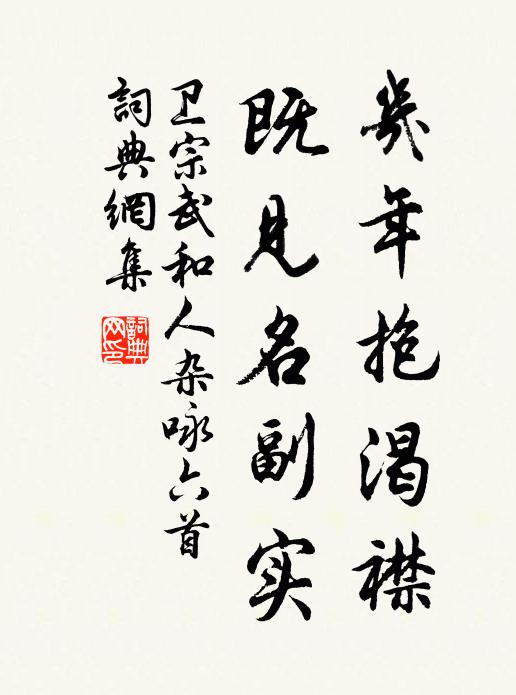 幾年抱渴襟
既见名副实
卫宗武和人杂咏六首
詞典網集
詞典网印